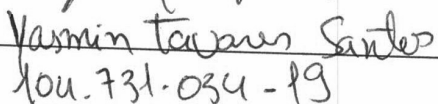 Yasmin Tavares Santos
104.731.034-19